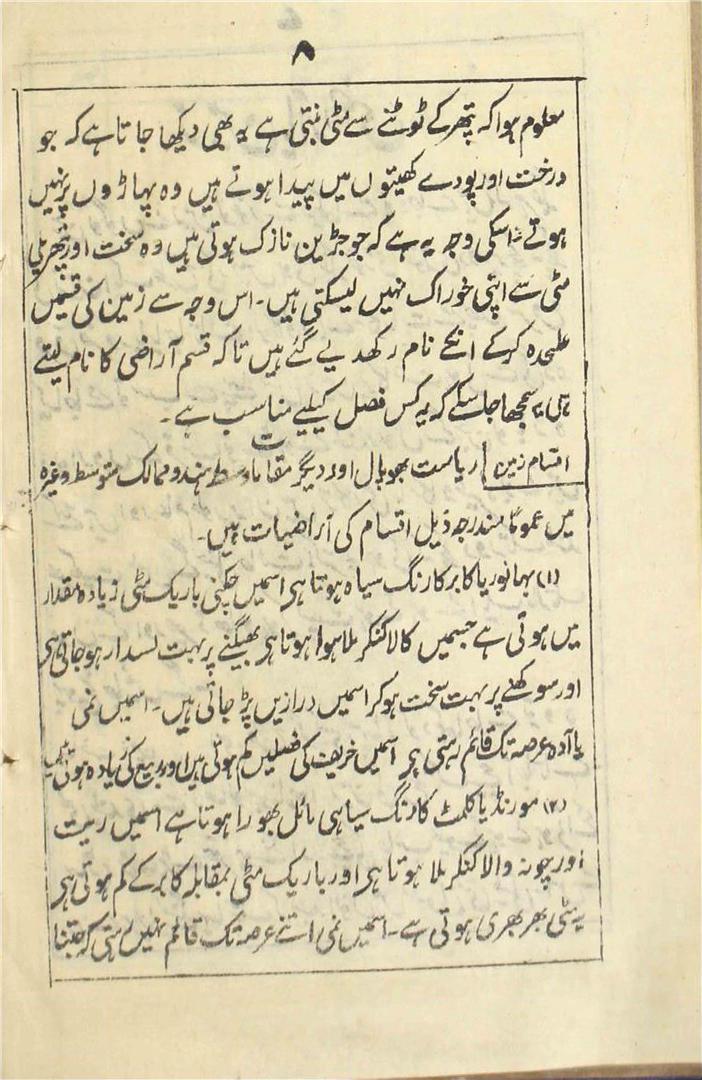 ۸
معلوم ہوا کہ پتھر کے ٹوٹنے سے مٹی بنتی ہے یہ بھی دیکھا جاتا ہے کہ جو
درخت اور پودے کھیتوں میں پیدا ہوتے ہیں وہ پہاڑوں پر نہیں
ہوتے۔ اسکی وجہ یہ ہے کہ جو جڑین نازک ہوتی ہیں وہ سخت اور پتھریلی
مٹی سے اپنی خوراک نہیں لیسکتی ہیں۔ اس وجہ سے زمین کی قسمیں
علیحدہ کرکے انکے نام رکھدیے گئے ہیں تاکہ قسم آراضی کا نام لیتے
ہی یہ سمجھا جا سکے کہ یہ کس فصل کیلیے مناسب ہے۔
اقسام زمین ریاست بھوپال اور دیگر مقامات وسط ہند و ممالک متوسط وغیرہ
میں عموماً مندرجہ ذیل اقسام کی آراضیات ہیں۔
(۱) بہانوریا کابر کا رنگ سیاہ ہوتا ہی اسمیں چکنی باریک مٹی زیادہ مقدار
میں ہوتی ہے جسمیں کالا کنکر ملا ہوا ہوتا ہی بھیگنے پر بہت لسدار ہوجاتی ہی
اور سوکھنے پر بہت سخت ہوکر اسمیں درازیں پڑ جاتی ہیں۔ اسمیں نمی
زیادہ عرصہ تک قائم رہتی ہی اسمیں خریف کی فصلیں کم ہوتی ہیں اور ربیع کی زیادہ ہوتی ہیں
(۲) مورنڈ یا کلمٹ کا رنگ سیاہی مائل بھورا ہوتا ہے اسمیں ریت
اور چونہ والا کنکر ملا ہوتا ہی اور باریک مٹی بمقابلہ کابر کے کم ہوتی ہی
یہ مٹی بھربھری ہوتی ہے۔ اسمیں نمی اتنے عرصہ تک قائم نہیں رہتی کہ جتنا